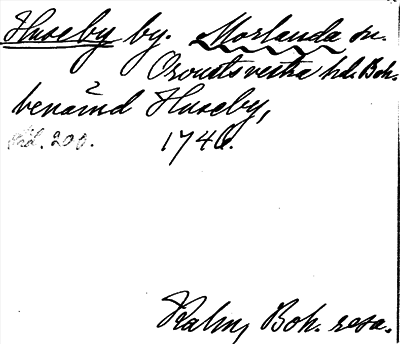 Huseby by. Morlanda sn.
Orousts vestra hd. Boh.
benämnd Huseby,
sid. 200. 1746.
Kalm, Boh. resa.